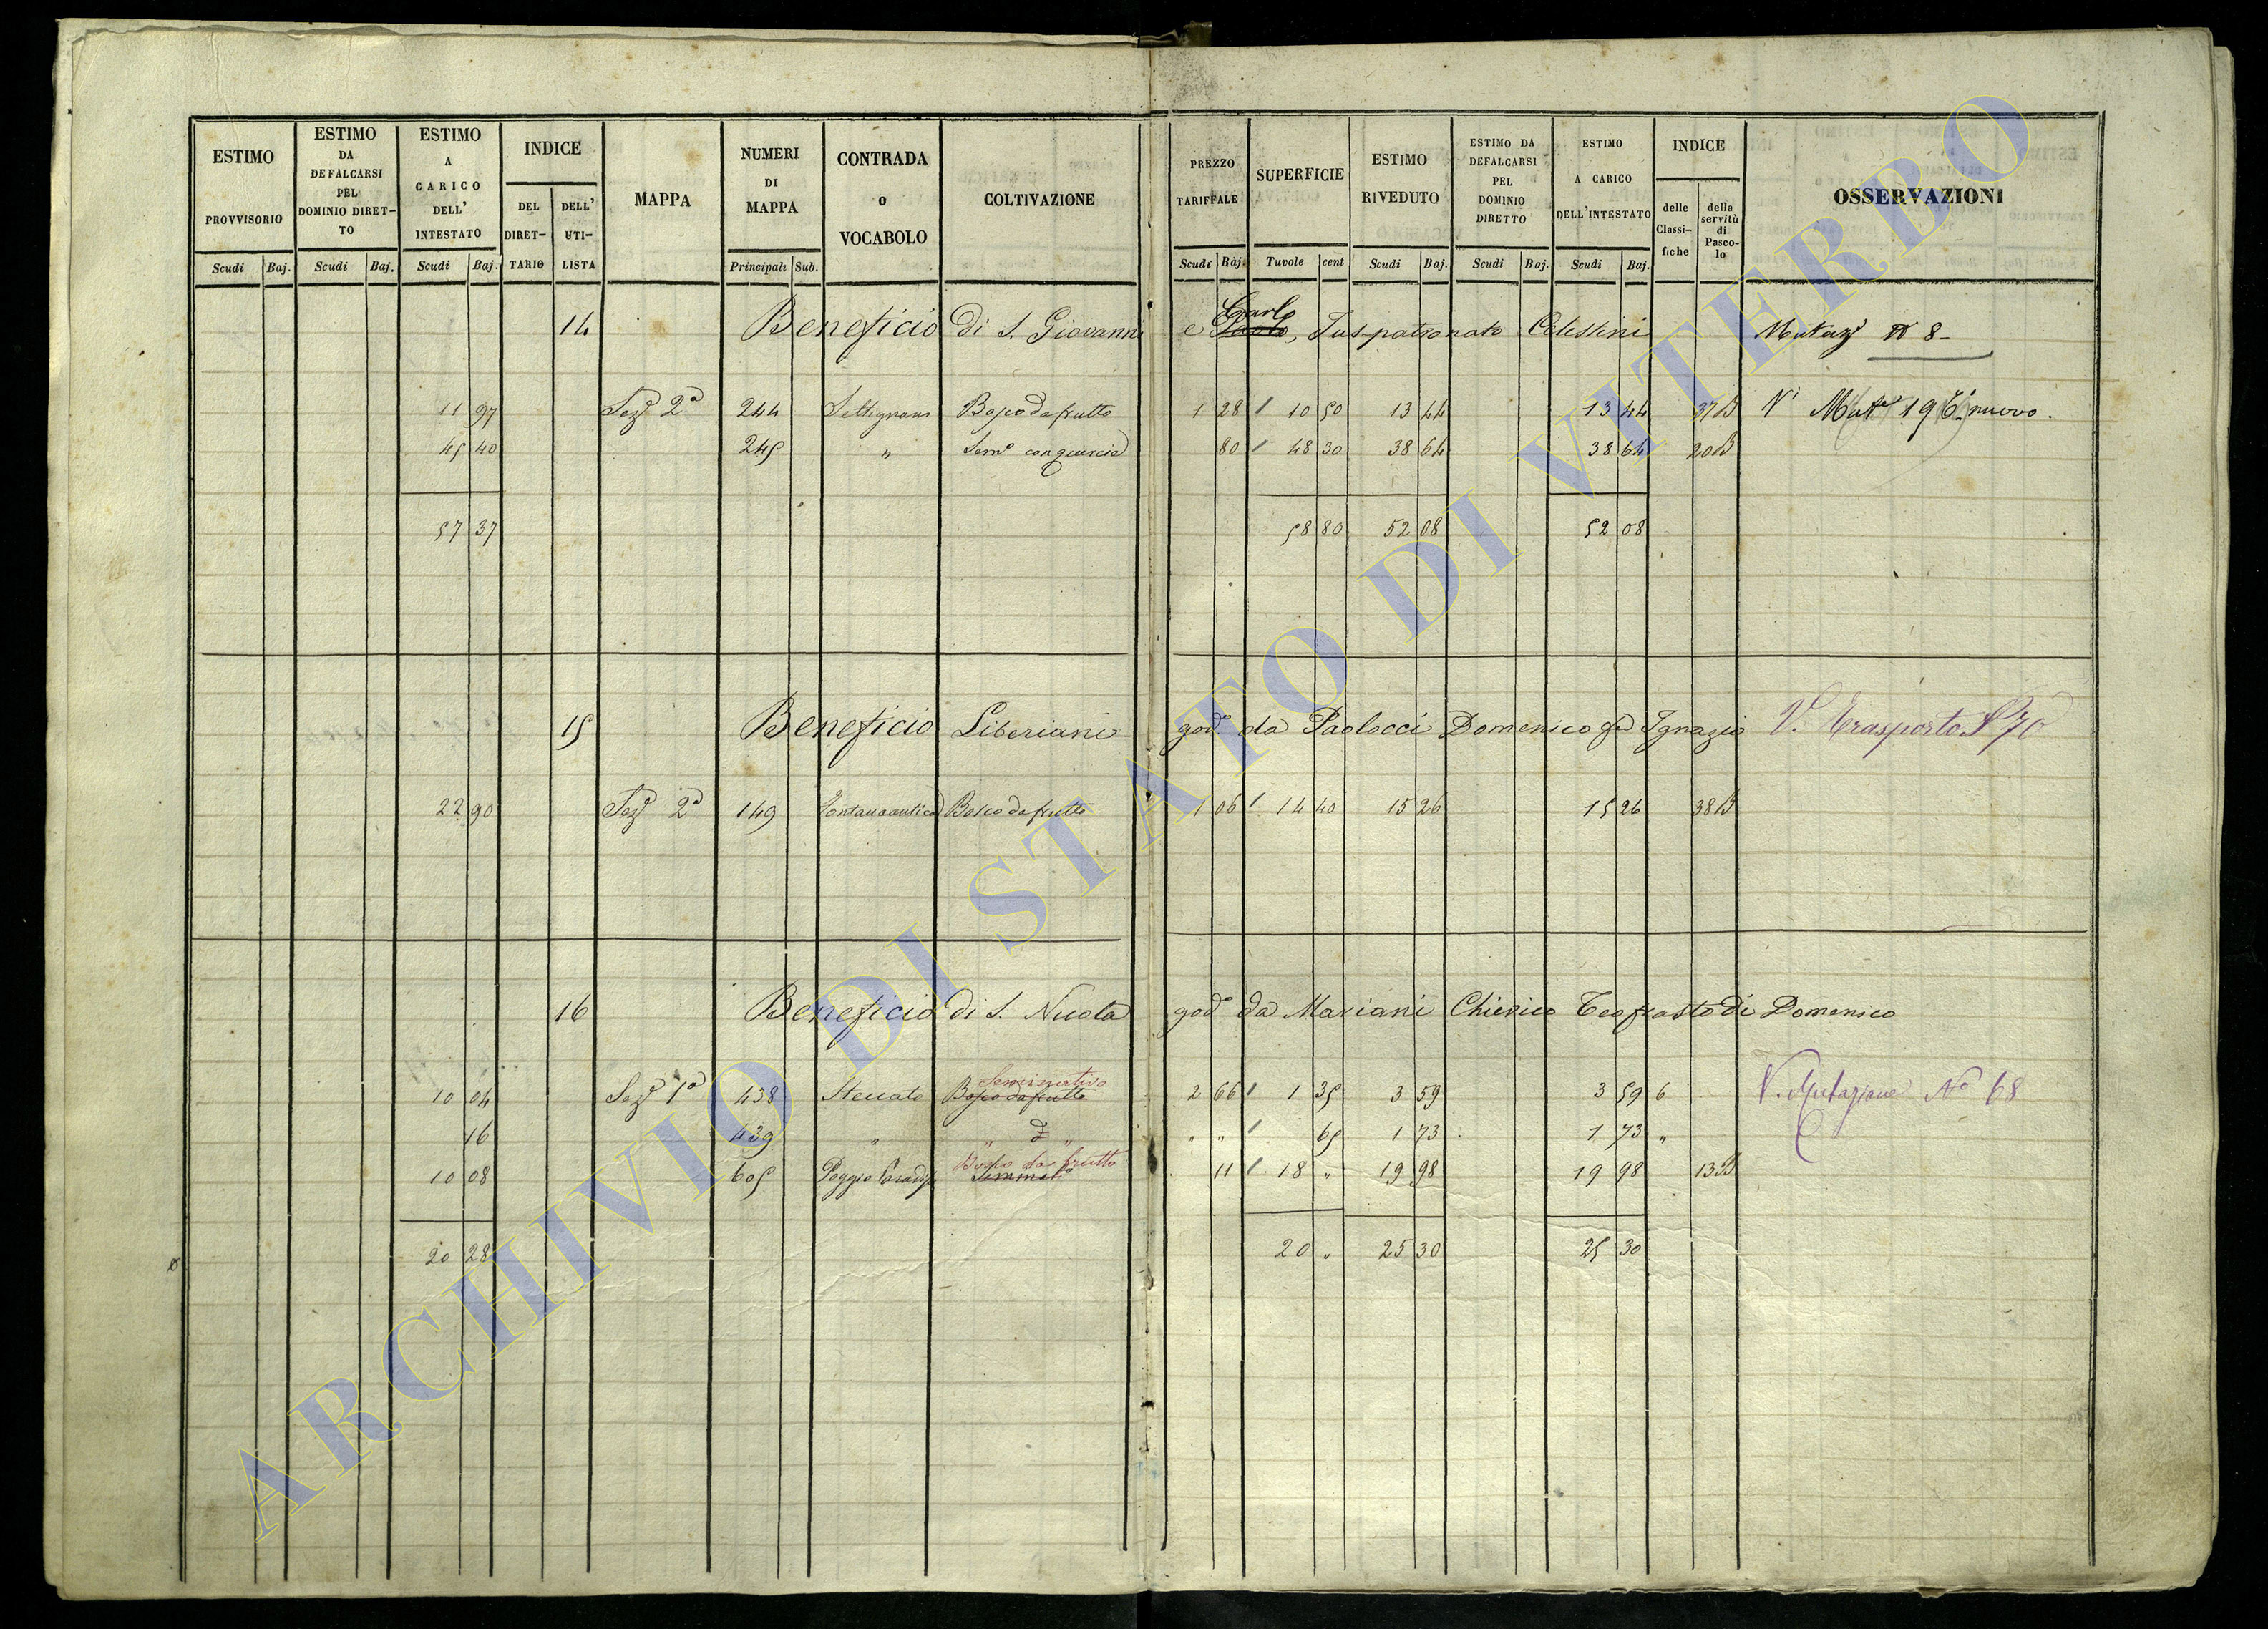 ESTIMO PROVVISORIO Scudi Baj.
ESTIMO DA DEFALCARSI PEL DOMINIO DIRET-TO Scudi Baj.
ESTIMO A CARICO DELL' INTESTATO Scudi Baj.
INDICE DEL DIRET-TARIO DELL' UTI-LISTA
MAPPA
NUMERI DI MAPPA Principali Sub.
CONTRADA o VOCABOLO
COLTIVAZIONE
PREZZO TARIFFALE Scudi Baj.
SUPERFICIE Tavole cent
ESTIMO RIVEDUTO Scudi Baj.
ESTIMO DA DEFALCARSI PEL DOMINIO DIRETTO Scudi Baj.
ESTIMO A CARICO DELL'INTESTATO Scudi Baj.
INDICE delle Classi-fiche della servitù di Pasco-lo
OSSERVAZIONI
14 Beneficio di S. Giovanni e Carlo Paolo, Juspatronato Celestini Mutaz. N 8
11 97 Sez. 2a 244 Settignano Bosco da frutto 1 28 10 50 13 44 13 44 37B Mut. 196 nuovo.
45 40 245 " Sem. con quercie 80 48 30 38 64 38 64 20B
57 37 58 80 52 08 52 08
15 Beneficio Liberiani god. da Paolocci Domenico fu Ignazio V. Trasporto 70
22 90 Sez. 2a 149 Fontana antica Bosco da frutto 1 06 14 40 15 26 15 26 38B
16 Beneficio di S. Nicola god. da Mariani Chierico Teofrasto di Domenico
10 04 Sez. 1a 438 Steccato Seminativo Bosco da frutto 2 66 1 35 3 59 3 59 6 V. Mutazione No 68
16 439 " " " " " 65 1 73 1 73 "
10 08 605 Poggio Paradiso Bosco da frutto Seminat. 1 11 18 " 19 98 19 98 13B
20 28 20 " 25 30 25 30
ARCHIVIO DI STATO DI VITERBO